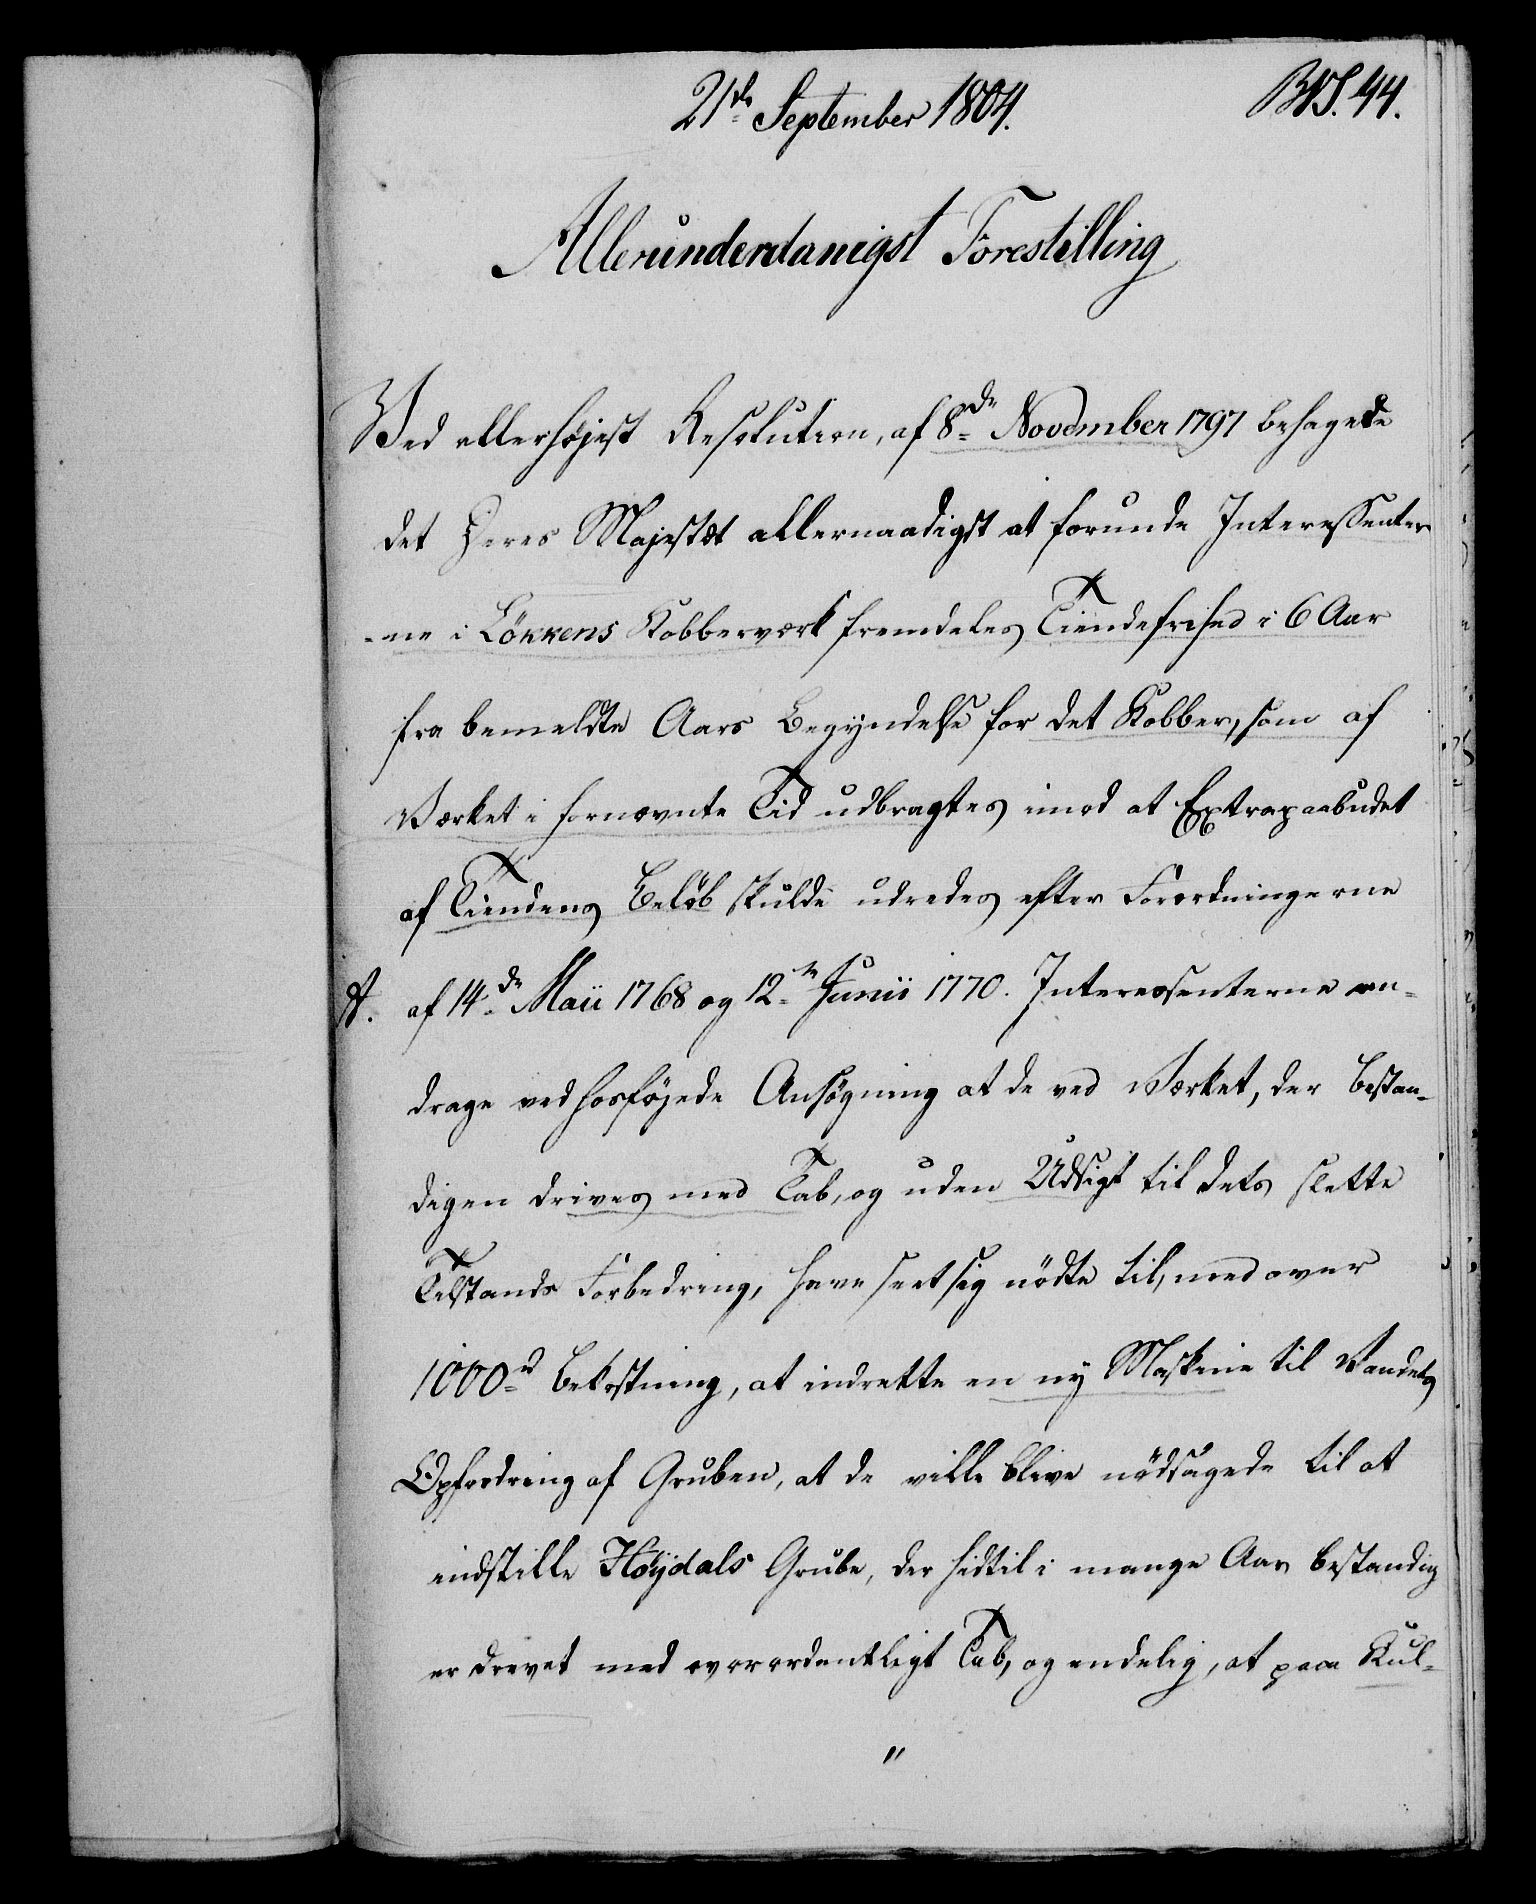 21de September 1804.
BVS. 44.
Allerunderdanigst Forestilling
Ved allerhøjest Resolution, af 8de November 1797 behagede
det Deres Majestæt allernaadigst at forunde Interessenter
-ne i Løkkens Kobberværk fremdeles Tiendefrihed i 6 Aar
fra bemeldte Aars Begyndelse for det Kobber, som af
Værket i fornævnte Tid udbragtes imod at Extrapaabudet
af Tiendens Beløb skulde udredes efter Forordningerne
A. af 14de Maii 1768 og 12te Junii 1770. Interessenterne an-
drage ved hosføjede Ansøgning at de ved Værket, der bestan-
digen drives med Tab, og uden Udsigt til dets slette
Tilstands Forbedring, have seet sig nødte til, med over
1000rd Bekostning, at indrette en ny Maskine til Vandets
Opfordring af Gruben, at de ville blive nødsagede til at
indstille Høydals Grube, der hidtil i mange Aar bestandig
er drevet med overordentligt Tab, og endelig, at paa Kul-
"